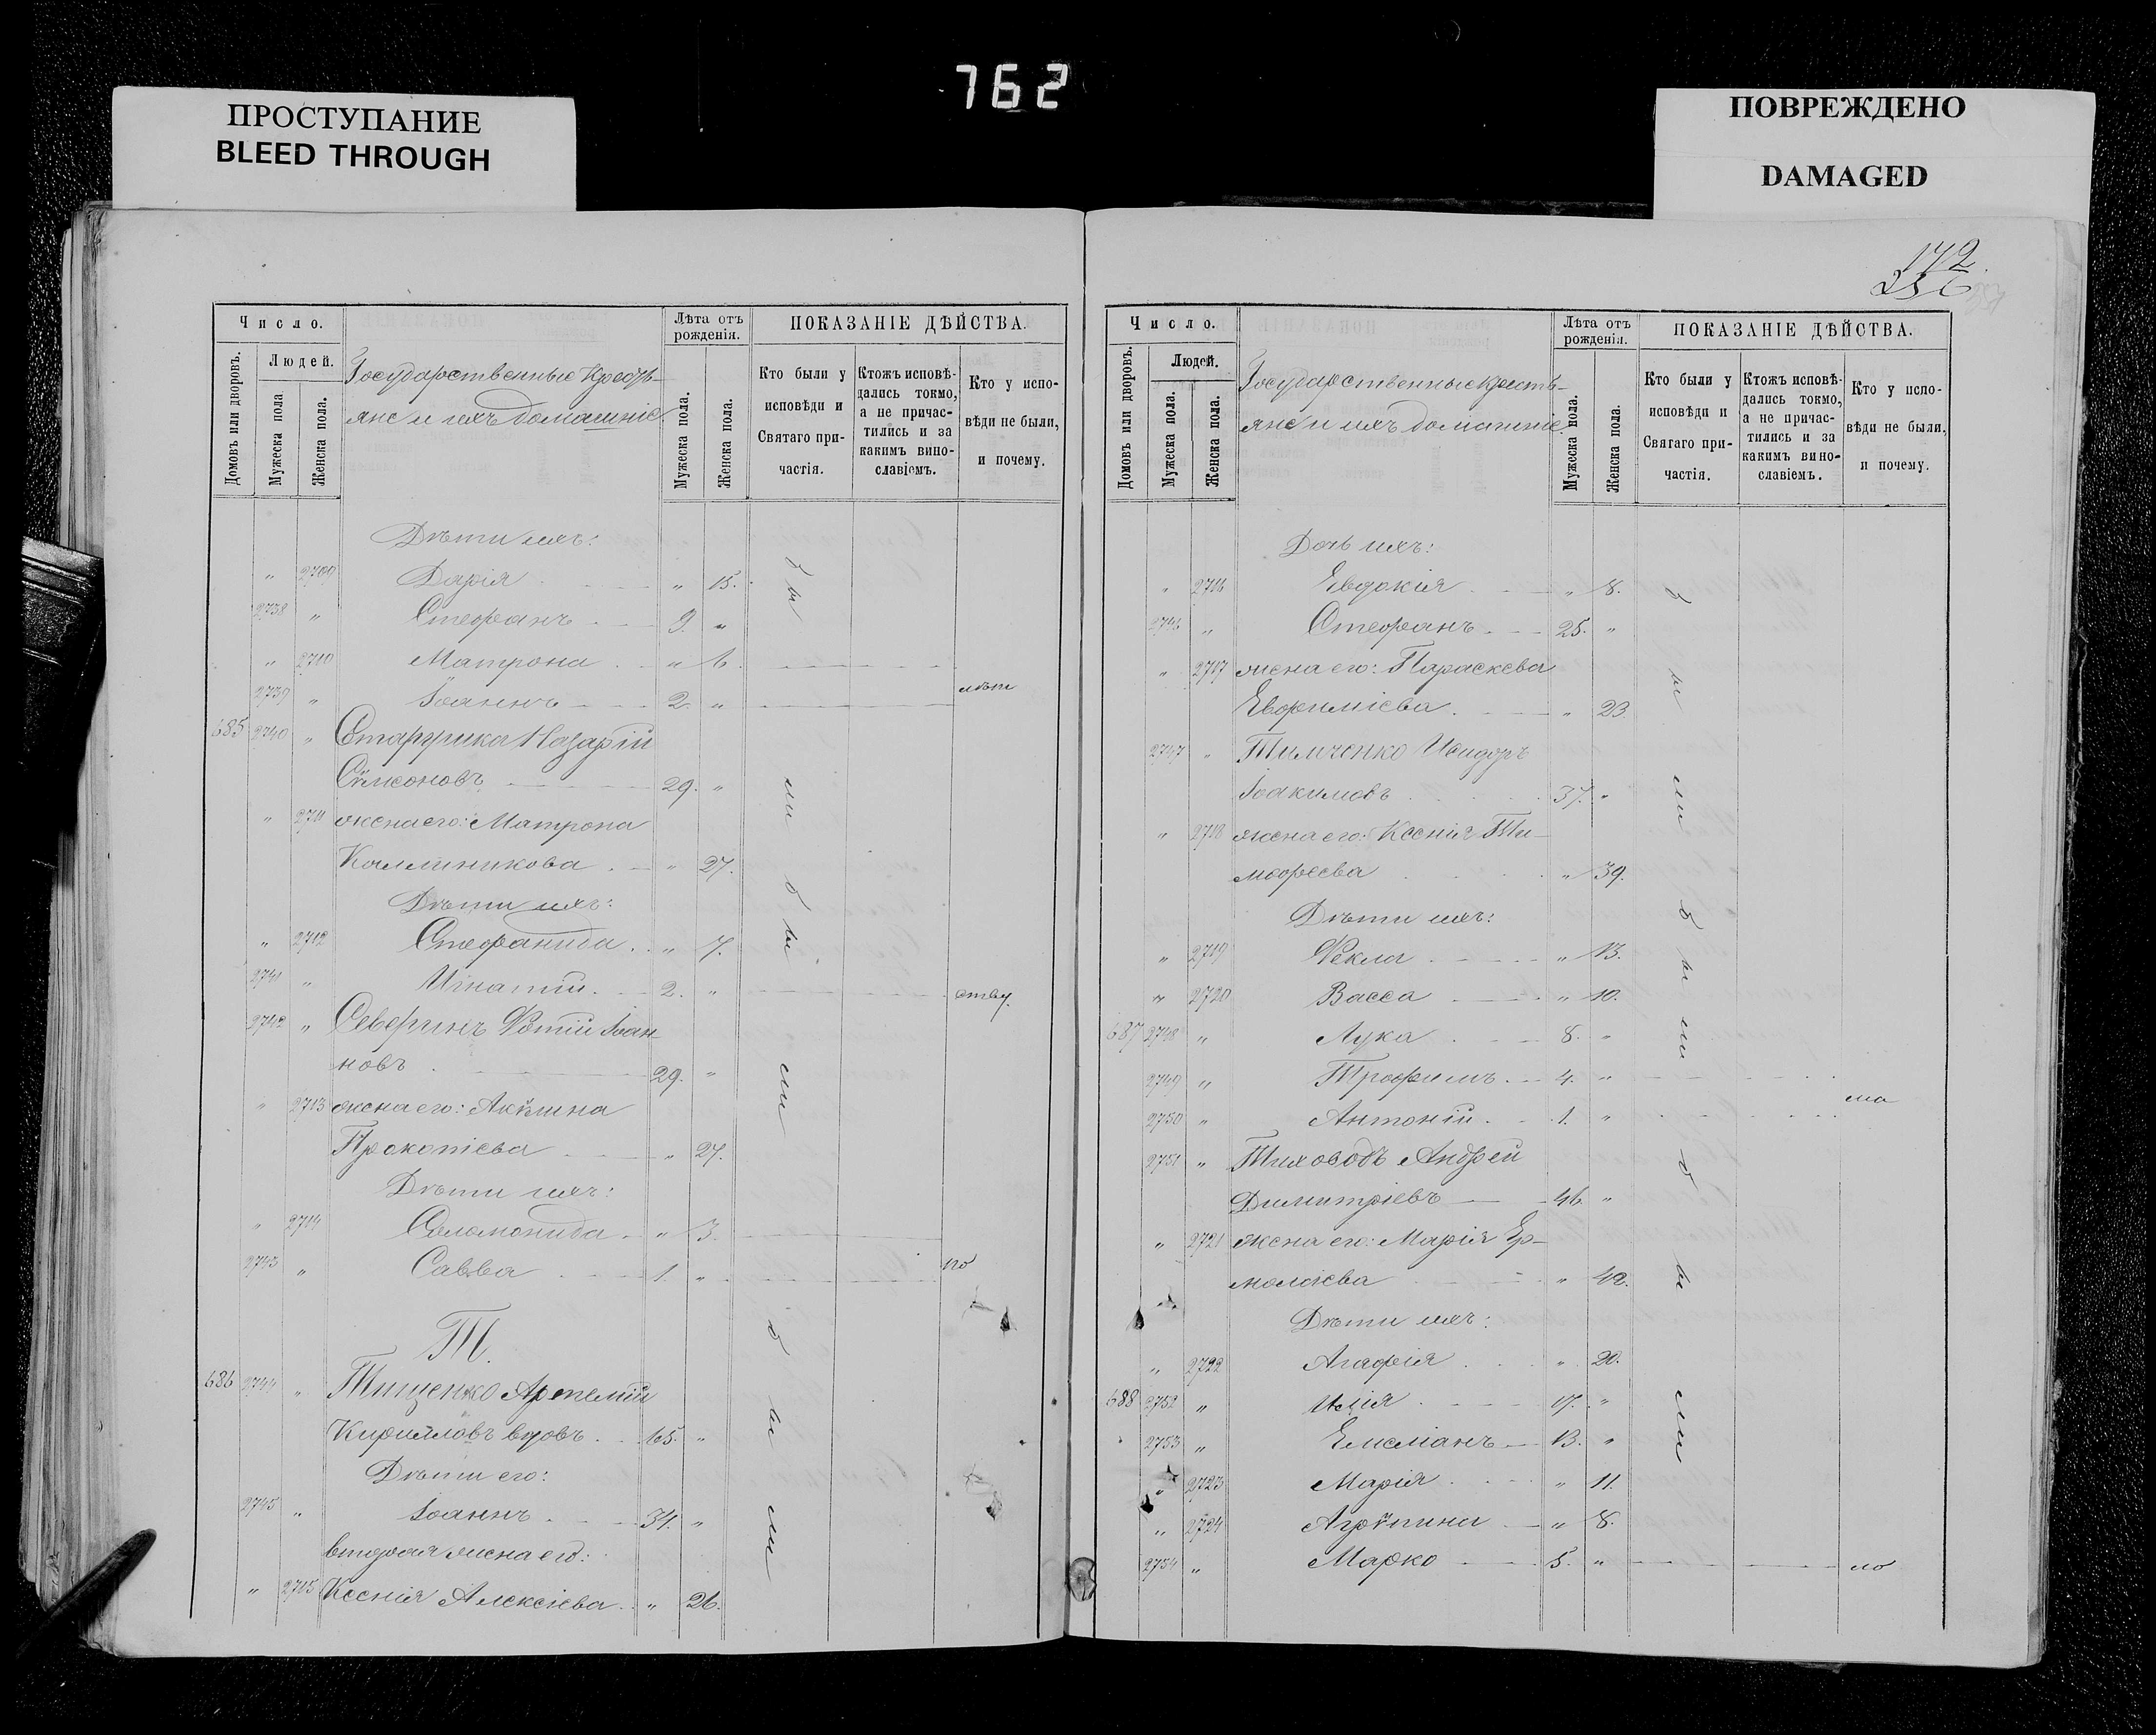 762
ПРОСТУПАНИЕ
BLEED THROUGH
ПОВРЕЖДЕНО
DAMAGED
Число.
Людей.
Домовъ или дворовъ.
Мужеска пола
Женска пола.
Государственные Крестъ-
яне и ихъ домашніе
Лѣта отъ рожденія.
Мужеска пола.
Женска пола.
ПОКАЗАНІЕ ДѢЙСТВА.
Кто были у исповѣди и Святаго причастія.
Ктожъ исповѣдались токмо, а не причастились и за какимъ винославіемъ.
Кто у исповѣди не были, и почему.
Дѣти ихъ:
" 2709 Дарія " 15.
2738 " Стефанъ 9. "
" 2710 Матрона " 6.
2739 " Іоаннъ 2. " лѣт
685 2740 " Старушка Назарій
Сѵмеоновъ 29. "
" 2711 жена его: Матрона
Каллиникова " 27.
Дѣти ихъ:
" 2712 Стефанида " 7.
2741 " Игнатій 2. " ству.
2742 " Северинъ Ѳотій Іоан-
новъ 29. "
" 2713 жена его: Акѵлина
Прокопіева " 27.
Дѣти ихъ:
" 2714 Соломонида " 3.
2743 " Савва 1. " по
Т.
686 2744 " Тищенко Артемій
Кирилловъ вдовъ 65. "
Дѣти его:
2745 " Іоаннъ 34. "
вторая жена его:
" 2715 Ксенія Алексіева " 26.
были
были
были
172.
Число.
Людей.
Домовъ или дворовъ.
Мужеска пола.
Женска пола.
Государственные Крестъ-
яне и ихъ домашніе
Лѣта отъ рожденія.
Мужеска пола.
Женска пола.
ПОКАЗАНІЕ ДѢЙСТВА.
Кто были у исповѣди и Святаго причастія.
Ктожъ исповѣдались токмо, а не причастились и за какимъ винославіемъ.
Кто у исповѣди не были, и почему.
Дочь ихъ:
" 2716 Евдокія " 8.
2746 " Стефанъ 25. "
" 2717 жена его: Параскева
Евфиміева " 23
2747 " Тимченко Исидоръ
Іоакимовъ 37. "
" 2718 жена его: Ксенія Ти-
моѳеева " 39.
Дѣти ихъ:
" 2719 Ѳекла " 13.
" 2720 Васса " 10.
687 2748 " Лука 8. "
2749 " Трофимъ 4. "
2750 " Антоній 1. " ма
2751 " Тиховодъ Андрей
Димитріевъ 46. "
" 2721 жена его: Марія Ер-
молаева " 42.
Дѣти ихъ:
" 2722 Агафія " 20.
688 2752 " Илія 17. "
2753 " Емеліанъ 13. "
" 2723 Марія " 11.
" 2724 Агрѵпина " 8.
2754 " Марко 5. " ло
были
были
были